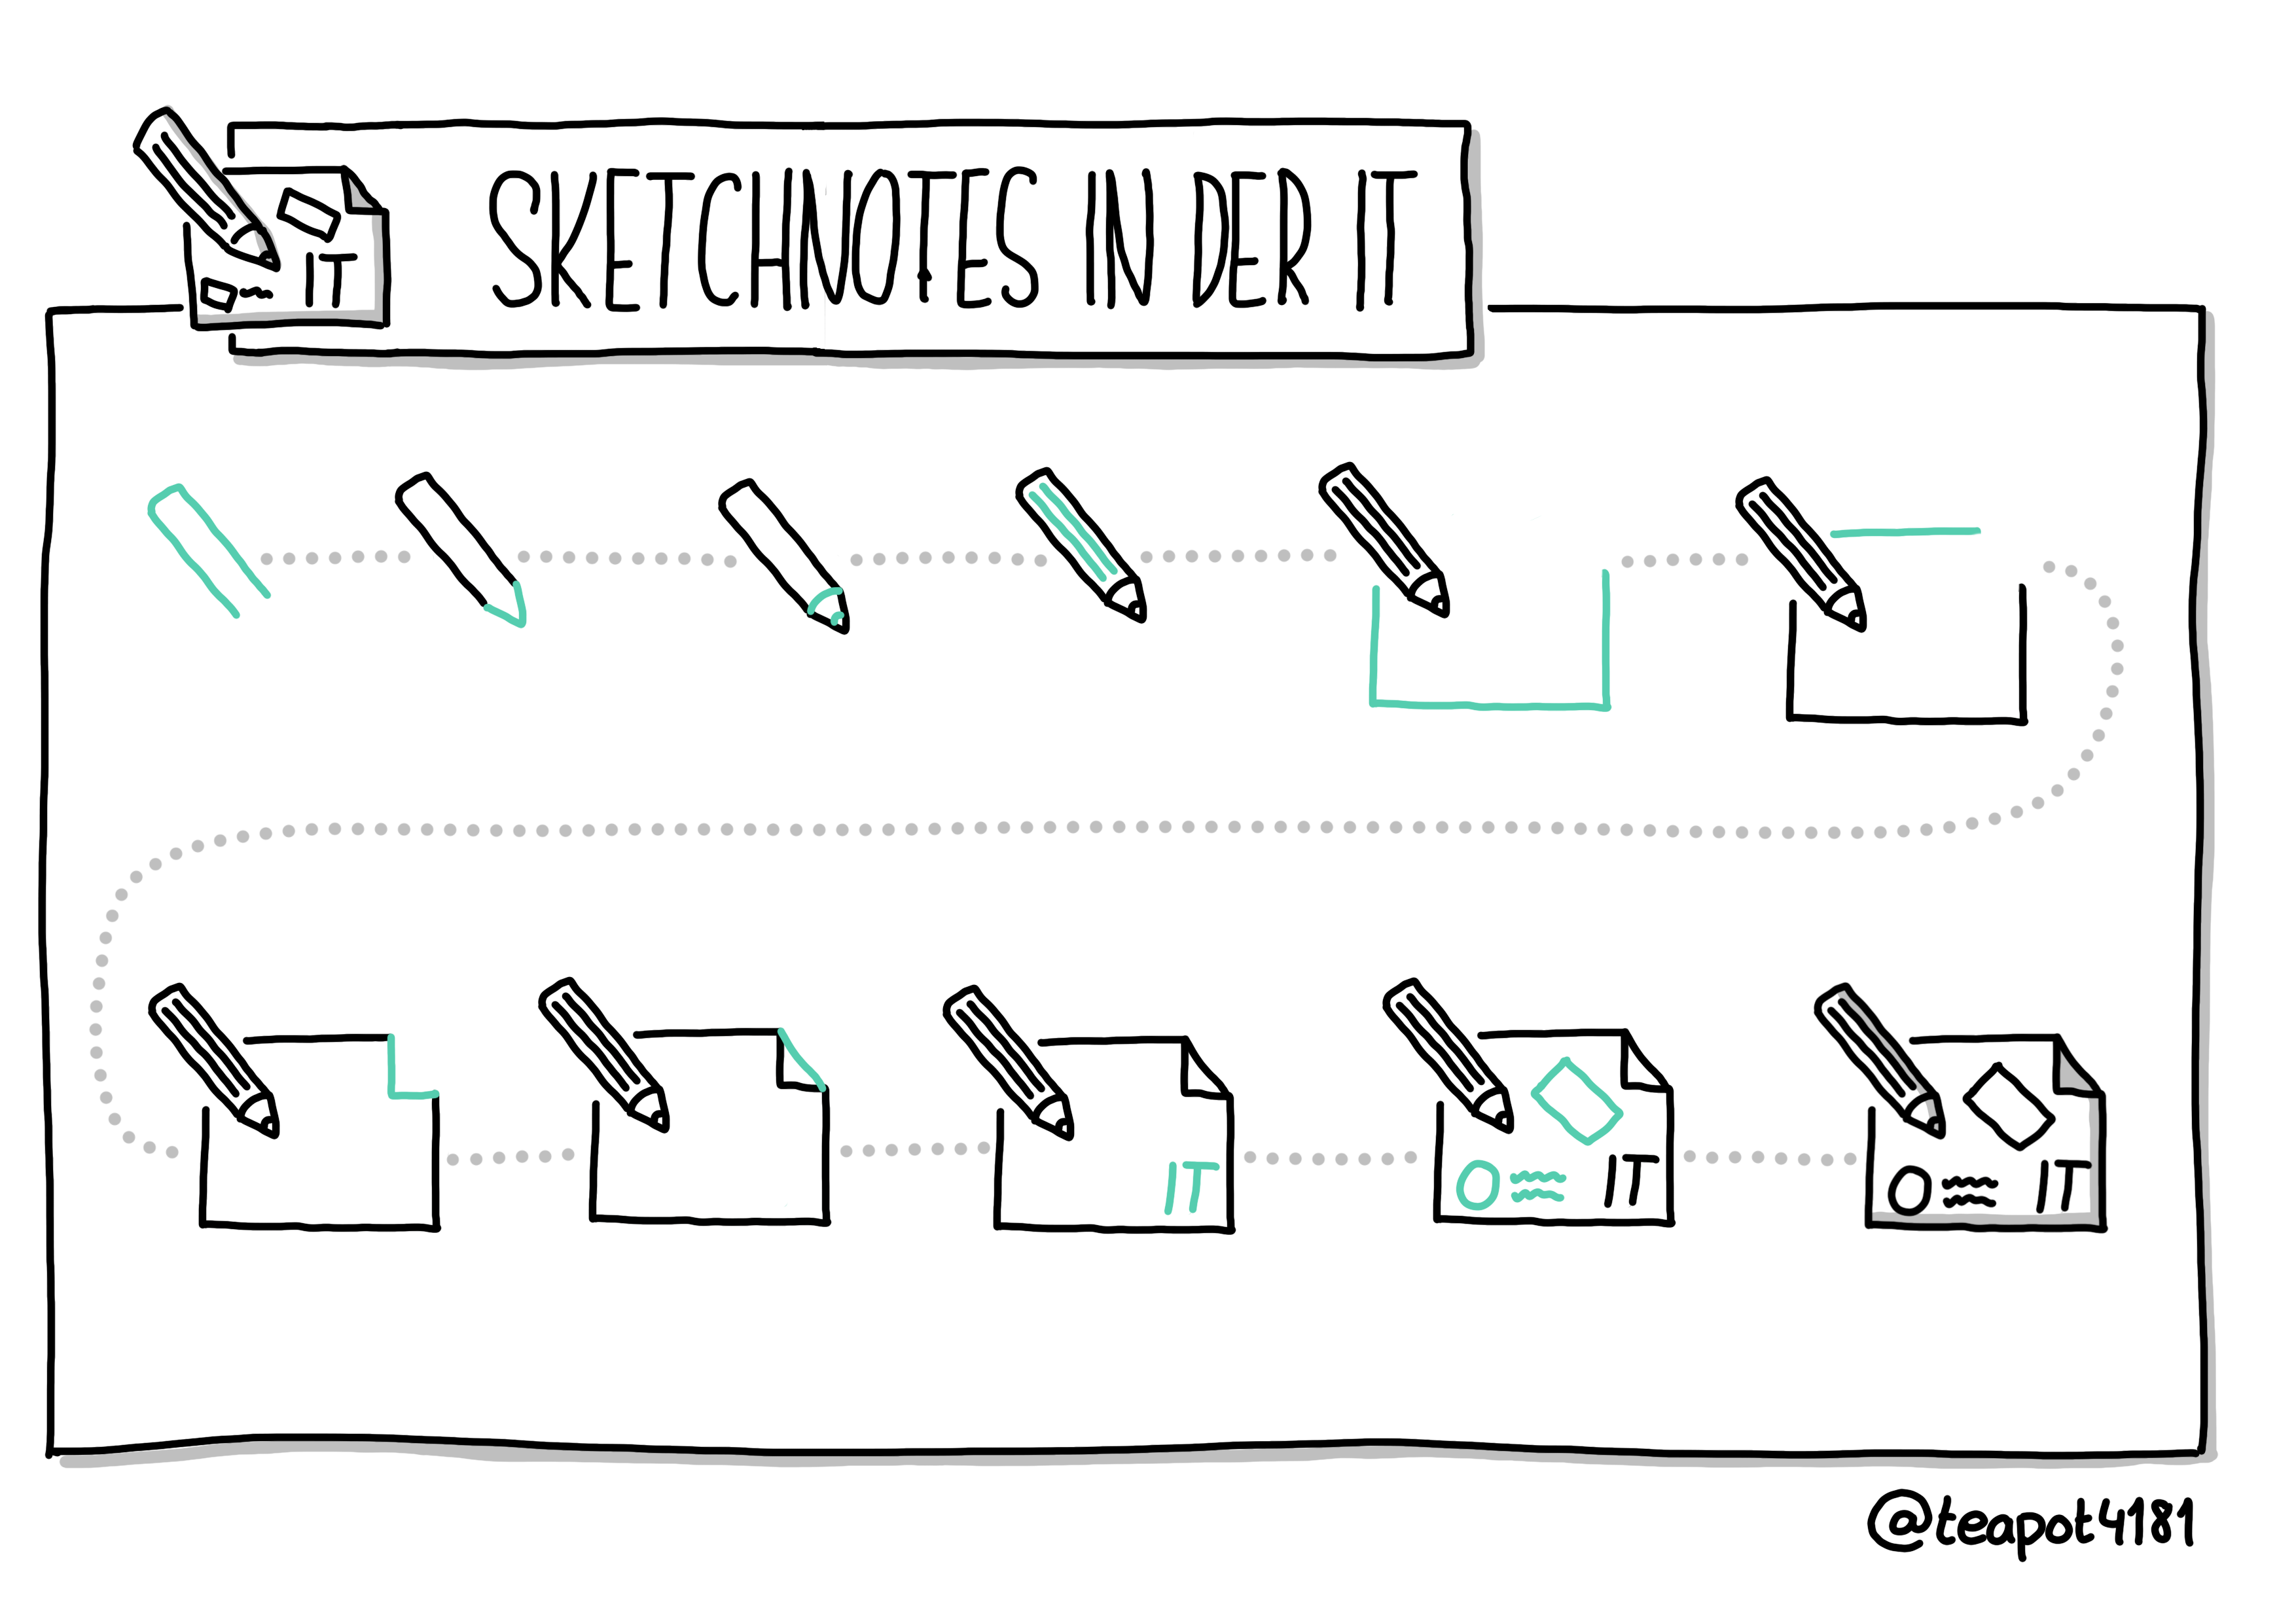 IT
SKETCHNOTES IN DER IT
IT
IT
IT
@teapot4181